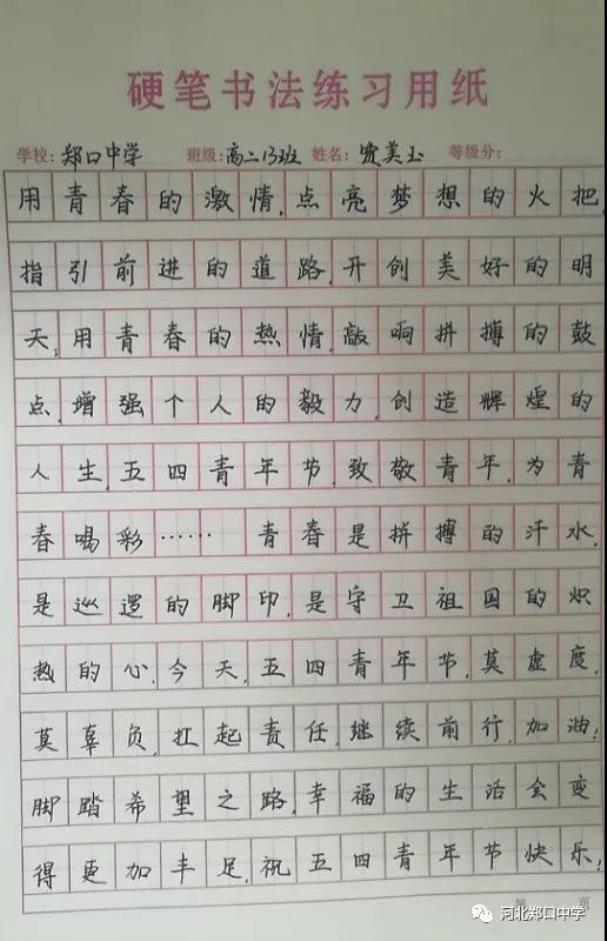 硬笔书法练习用纸
学校:郑口中学 班级:高二13班 姓名:贾美玉 等级分:
用青春的激情,点亮梦想的火把,
指引前进的道路,开创美好的明
天;用青春的热情,敲响拼搏的鼓
点,增强个人的毅力,创造辉煌的
人生,五四青年节,致敬青年,为青
春喝彩…… 青春是拼搏的汗水,
是巡逻的脚印,是守卫祖国的炽
热的心,今天,五四青年节,莫虚度,
莫辜负,扛起责任,继续前行,加油!
脚踏希望之路,幸福的生活会变
得更加丰足,祝五四青年节快乐!
第 页
河北郑口中学